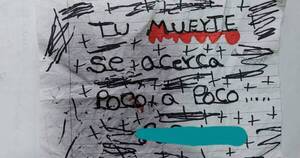 TU MUERTE
Se acerca
POCO a POCO.....